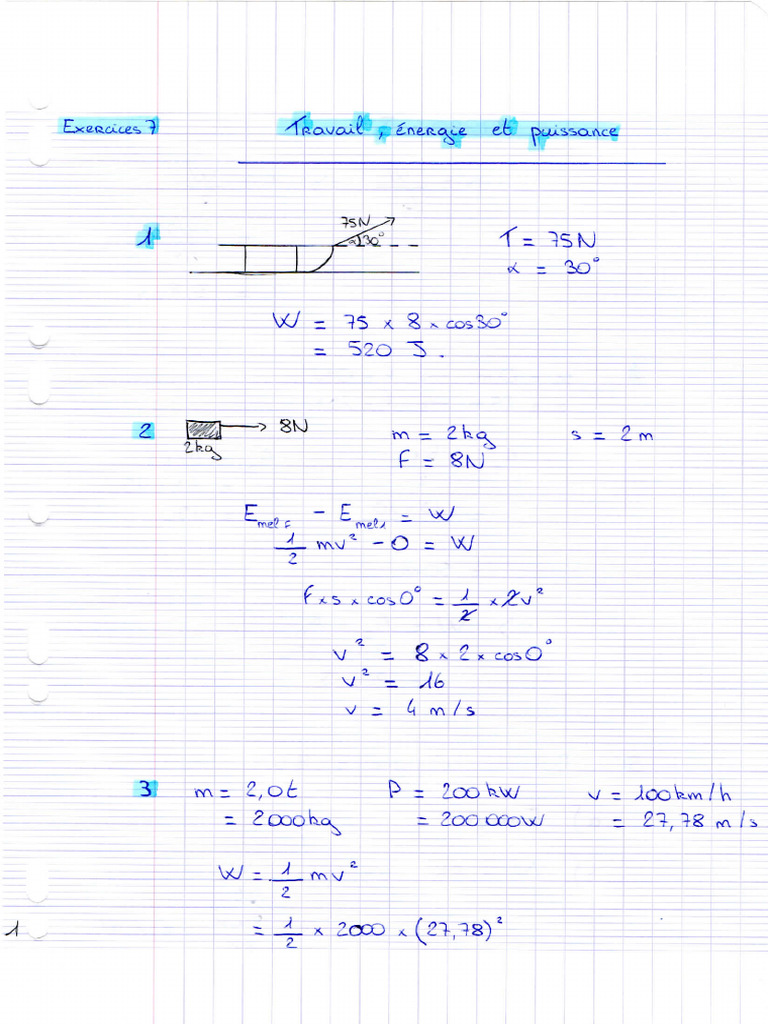 Exercices 7 Travail, énergie et puissance
75N
1 α 30° T = 75N
α = 30°
W = 75 × 8 × cos30°
= 520 J.
2 8N m = 2kg s = 2m
2kg F = 8N
- = W
1/2 mv² - 0 = W
F×s×cos0° = 1/2 × 2v²
v² = 8 × 2 × cos0°
v² = 16
v = 4 m/s
3 m = 2,0t P = 200kW v = 100km/h
= 2000kg = 200 000W = 27,78 m/s
W = 1/2 mv²
1 = 1/2 × 2000 × (27,78)²